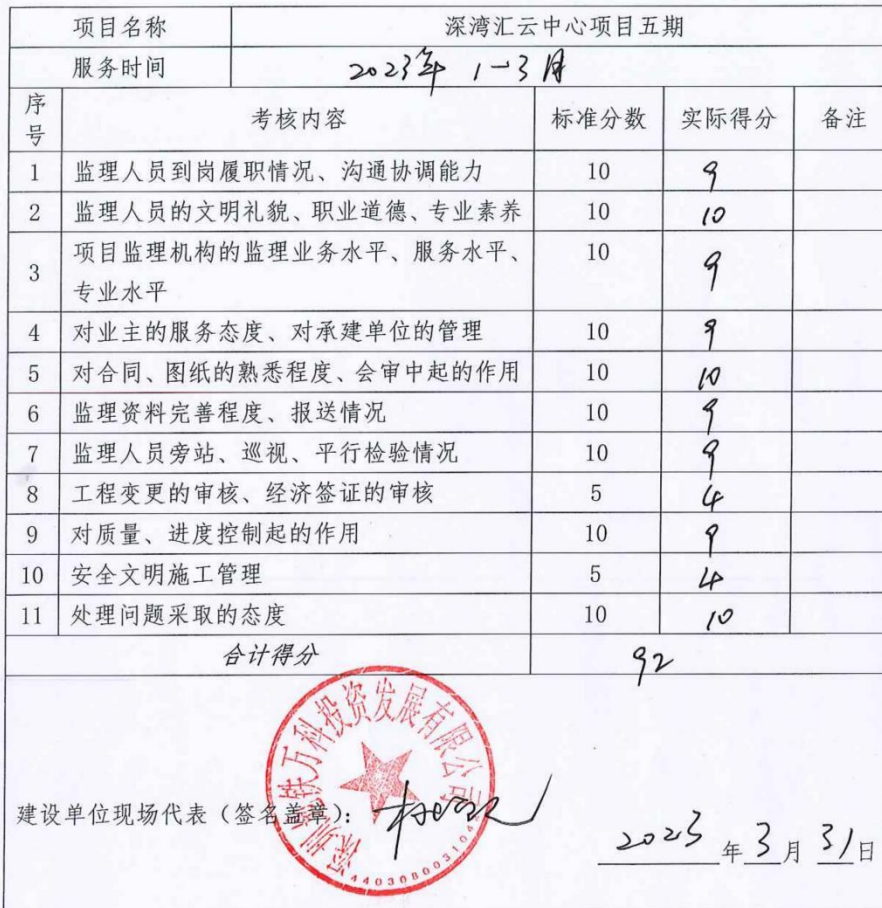 项目名称 深湾汇云中心项目五期
服务时间 2023年 1-3月
序号 考核内容 标准分数 实际得分 备注
1 监理人员到岗履职情况、沟通协调能力 10 9
2 监理人员的文明礼貌、职业道德、专业素养 10 10
3 项目监理机构的监理业务水平、服务水平、 10 9
专业水平
4 对业主的服务态度、对承建单位的管理 10 9
5 对合同、图纸的熟悉程度、会审中起的作用 10 10
6 监理资料完善程度、报送情况 10 9
7 监理人员旁站、巡视、平行检验情况 10 9
8 工程变更的审核、经济签证的审核 5 4
9 对质量、进度控制起的作用 10 9
10 安全文明施工管理 5 4
11 处理问题采取的态度 10 10
合计得分 92
深圳地铁万科投资发展有限公司
建设单位现场代表（签名盖章）：
2023年3月31日